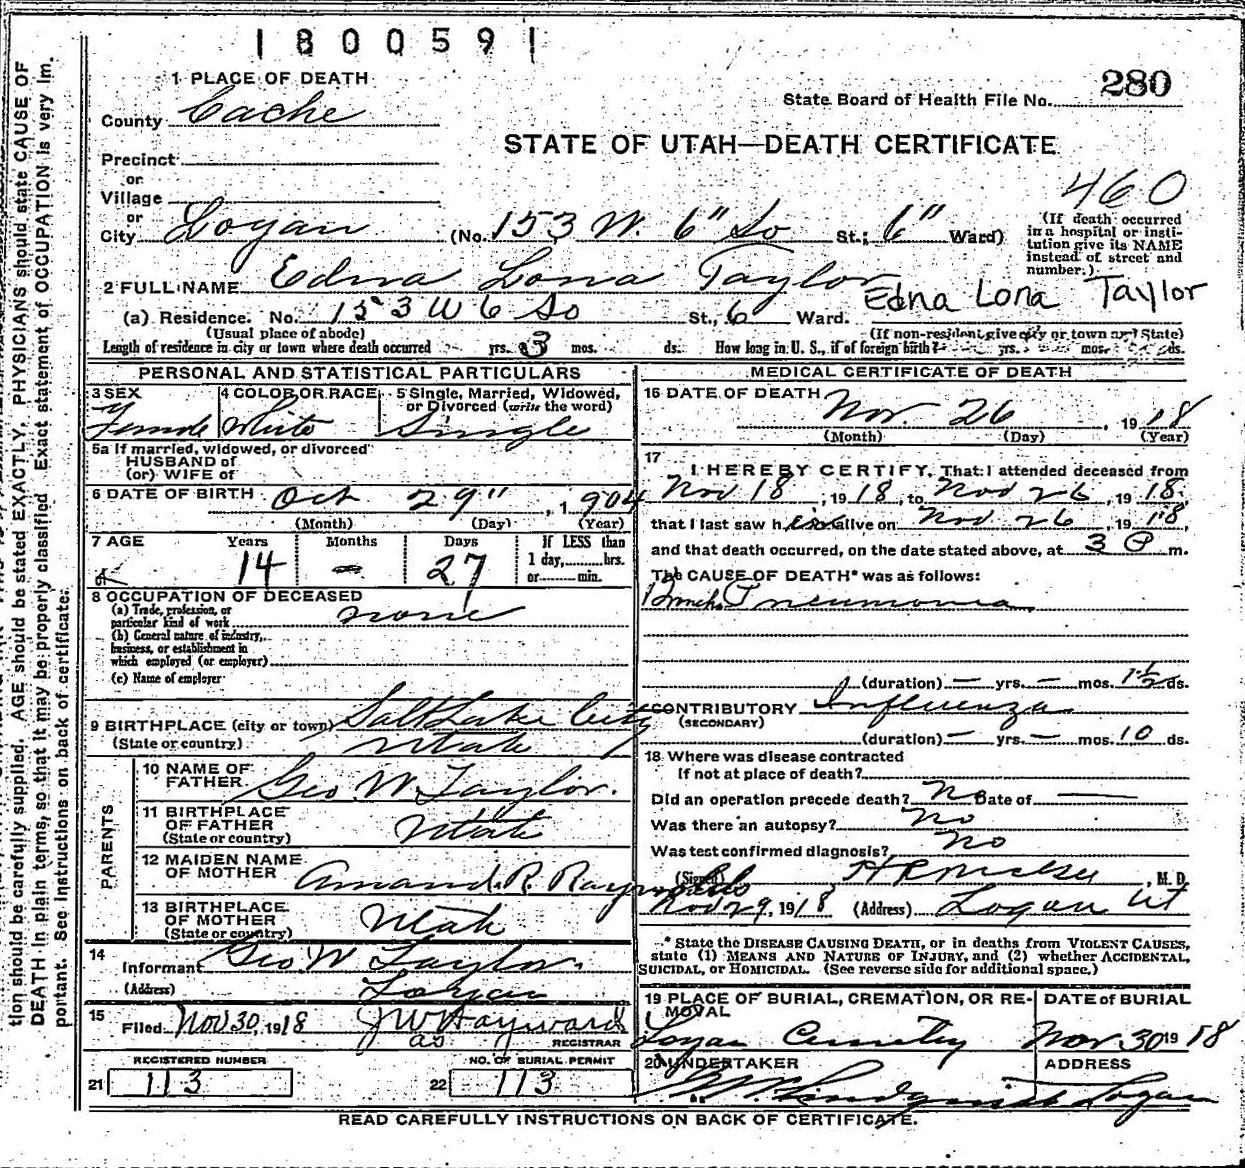 1800591
1 PLACE OF DEATH
280
State Board of Health File No.
County Cache
STATE OF UTAH—DEATH CERTIFICATE
Precinct
or
460
Village
or
City Logan (No. 153 W. 6" So St.; 6" Ward)
(If death occurred in a hospital or insti-
tution give its NAME
instead of street and
number.)
2 FULL NAME Edna Lona Taylor
Edna Lona Taylor
(a) Residence. No. 153 W 6 So St., 6 Ward.
(Usual place of abode) (If non-resident give city or town and State)
Length of residence in city or town where death occurred yrs. 3 mos. ds. How long in U. S., if of foreign birth? yrs. mos. ds.
PERSONAL AND STATISTICAL PARTICULARS
3 SEX 4 COLOR OR RACE 5 Single, Married, Widowed,
or Divorced (write the word)
Female White Single
5a If married, widowed, or divorced
HUSBAND of
(or) WIFE of
6 DATE OF BIRTH Oct 29" , 1904
(Month) (Day) (Year)
7 AGE Years Months Days If LESS than
1 day, hrs.
or min.
14 - 27
8 OCCUPATION OF DECEASED
(a) Trade, profession, or
particular kind of work none
(b) General nature of industry,
business, or establishment in
which employed (or employer)
(c) Name of employer
9 BIRTHPLACE (city or town) Salt Lake City
(State or country) Utah
PARENTS
10 NAME OF
FATHER Geo. W. Taylor.
11 BIRTHPLACE
OF FATHER
(State or country) Utah
12 MAIDEN NAME
OF MOTHER Amand. R. Raynolds
13 BIRTHPLACE
OF MOTHER
(State or country) Utah
14
Informant Geo W Taylor.
(Address) Logan
15
Filed Nov 30, 1918 J W Hayward
REGISTRAR
REGISTERED NUMBER NO. OF BURIAL PERMIT
21 113 22 113
MEDICAL CERTIFICATE OF DEATH
16 DATE OF DEATH Nov. 26 , 1918
(Month) (Day) (Year)
17
I HEREBY CERTIFY, That I attended deceased from
Nov 18 , 1918, to Nov 26 , 1918.
that I last saw h er alive on Nov 26 , 1918,
and that death occurred, on the date stated above, at 3 P m.
The CAUSE OF DEATH* was as follows:
Broncho Pneumonia
(duration) — yrs. — mos. ds.
CONTRIBUTORY Influenza
(SECONDARY)
(duration) — yrs. — mos. 10 ds.
18 Where was disease contracted
If not at place of death?
Did an operation precede death? No Date of —
Was there an autopsy? No
Was test confirmed diagnosis? No
(Signed) , M. D.
Nov 29, 1918 (Address) Logan Ut
* State the DISEASE CAUSING DEATH, or in deaths from VIOLENT CAUSES,
state (1) MEANS AND NATURE OF INJURY, and (2) whether ACCIDENTAL,
SUICIDAL, or HOMICIDAL. (See reverse side for additional space.)
19 PLACE OF BURIAL, CREMATION, OR RE-
MOVAL
DATE of BURIAL
Logan Cemetery Nov. 30 1918
20 UNDERTAKER ADDRESS
Lindquist Logan
READ CAREFULLY INSTRUCTIONS ON BACK OF CERTIFICATE.
tion should be carefully supplied. AGE should be stated EXACTLY. PHYSICIANS should state CAUSE OF
DEATH in plain terms, so that it may be properly classified. Exact statement of OCCUPATION is very im.
portant. See instructions on back of certificate.